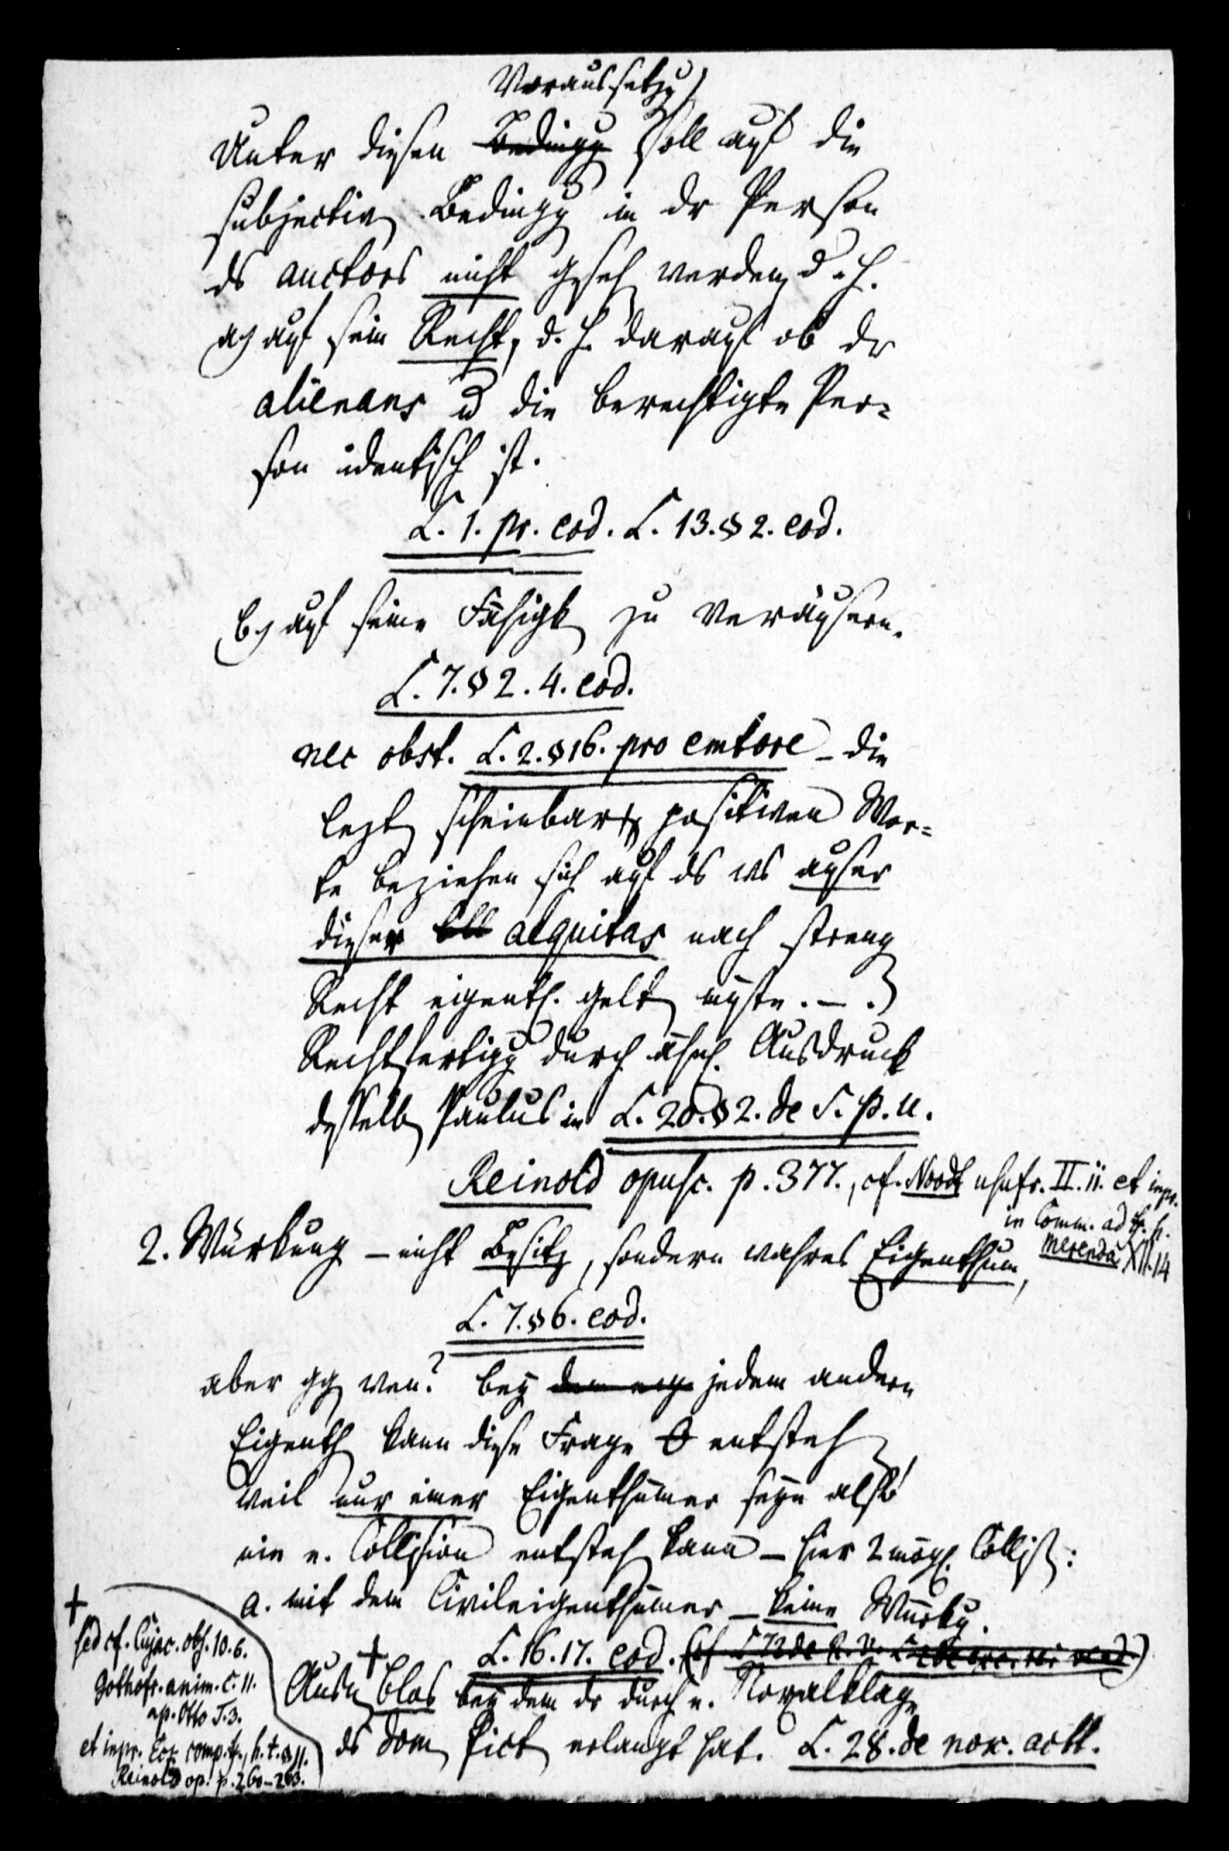 Voraussetzg
Unter diesen Bedingg soll auf die
subjectiv Bedingg in dr Person
ds auctors nicht gesehn werden, d. h.
a) auf sein Recht, d. h. darauf ob dr
alienans u die berechtigte Per=
son identisch ist.
L. 1. pr. eod. L. 13. § 2. eod.
b) auf seine Fähigk zu veräusern.
L. 7. § 2. 4. eod.
nec obst. L. 2. § 16. pro emtore – die
lezt scheinbar positiven Wor=
te beziehen sich auf ds ws auser
dieser aequitas nach streng
Recht eigentl. gelt müste. – .
Rechtfertigg durch ähnl. Ausdruck
desselb Paulus in L. 20. § 2. de S. P. U.
Reinold opusc. p. 377., cf. Noodt usufr. II. ii. et inpr.
in Comm. ad h.
Merenda XII. 14
2. Würkung – nicht Besitz, sondern wahres Eigenthum,
L. 7. § 6. eod.
aber gg wen? bey jedem andern
Eigenth kann diese Frage entsteh
weil nur einer Eigenthümer seyn also
nie e. Collision entsteh kann – hier 2 mögl. Collis:
a. mit dem Civileigenthümer – keine Würkg.
L. 16. 17. eod. (cf
Ausn blos bey dem dr durch e. Noxalklage
ds dom Pict erlangt hat. L. 28. de nox. actt.
+
sed cf. Cujac. obs. 10. 6.
Gothofr. anim. C. 11.
ap. Otto T. 3.
et inpr. comp. h. t. § 11.
Reinold op. p. 260–263.